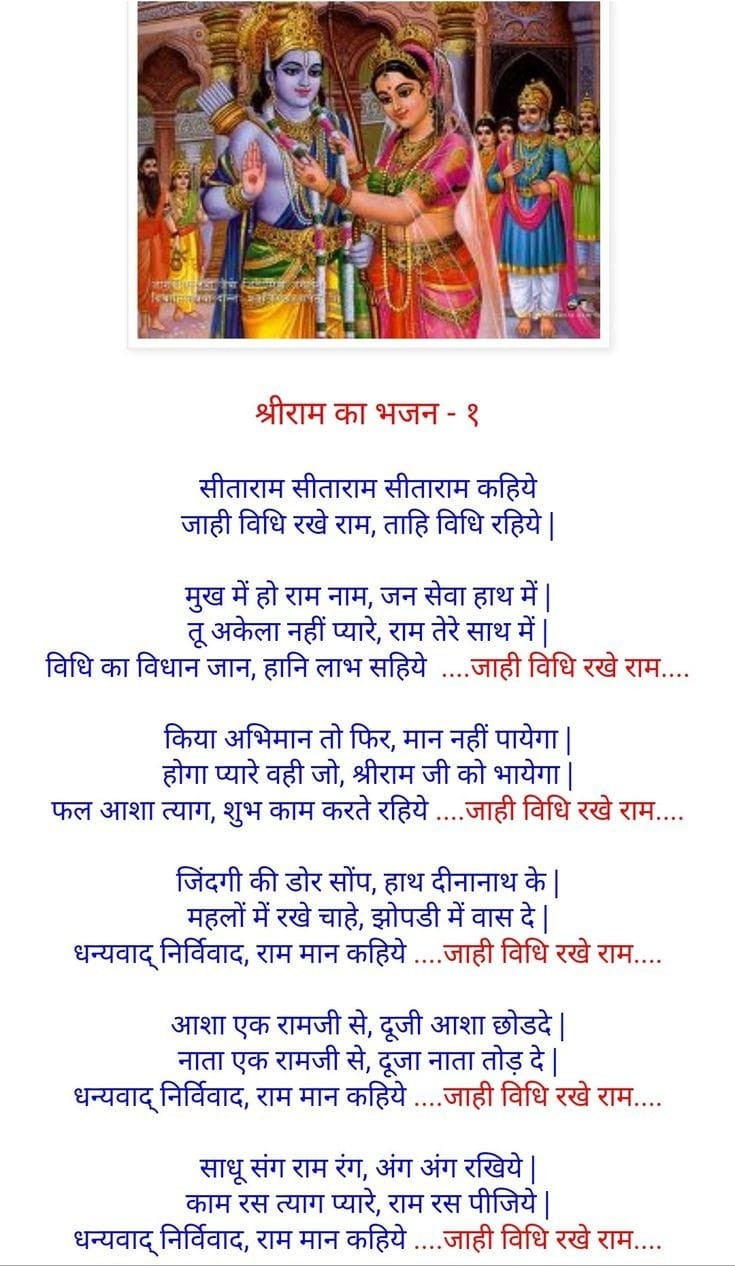 श्रीराम का भजन - १
सीताराम सीताराम सीताराम कहिये
जाही विधि रखे राम, ताहि विधि रहिये |
मुख में हो राम नाम, जन सेवा हाथ में |
तू अकेला नहीं प्यारे, राम तेरे साथ में |
विधि का विधान जान, हानि लाभ सहिये ....जाही विधि रखे राम....
किया अभिमान तो फिर, मान नहीं पायेगा |
होगा प्यारे वही जो, श्रीराम जी को भायेगा |
फल आशा त्याग, शुभ काम करते रहिये ....जाही विधि रखे राम....
जिंदगी की डोर सोंप, हाथ दीनानाथ के |
महलों में रखे चाहे, झोपडी में वास दे |
धन्यवाद् निर्विवाद, राम मान कहिये ....जाही विधि रखे राम....
आशा एक रामजी से, दूजी आशा छोडदे |
नाता एक रामजी से, दूजा नाता तोड़ दे |
धन्यवाद् निर्विवाद, राम मान कहिये ....जाही विधि रखे राम....
साधू संग राम रंग, अंग अंग रखिये |
काम रस त्याग प्यारे, राम रस पीजिये |
धन्यवाद् निर्विवाद, राम मान कहिये ....जाही विधि रखे राम....